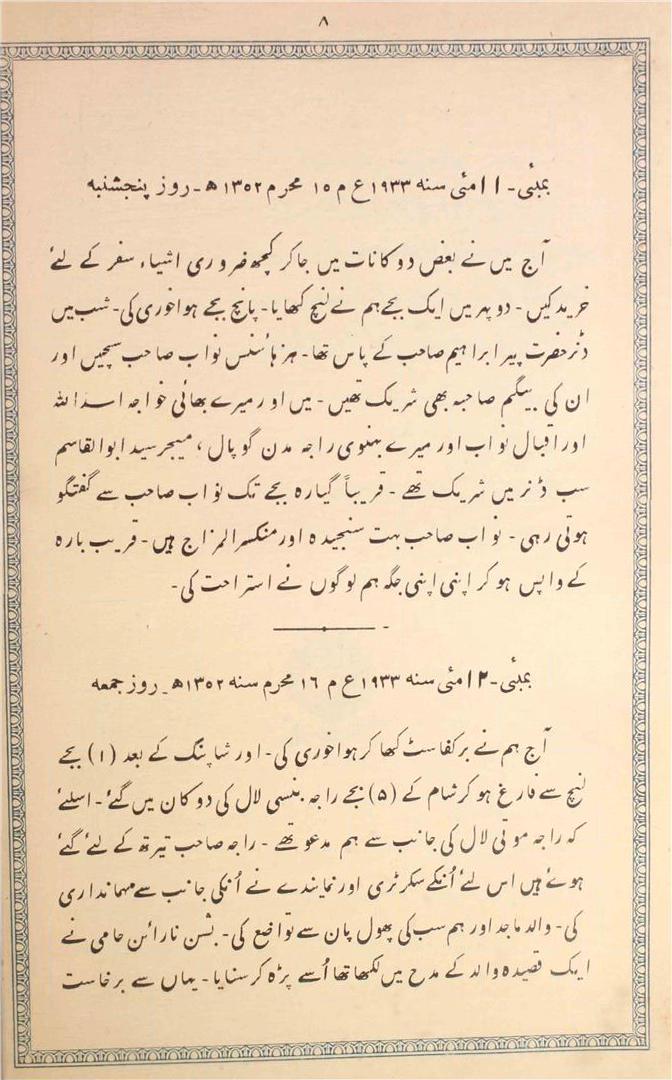 ۸
بمبئی - ۱۱ مئی سنہ ۱۹۳۳ع م ۱۵ محرم ۱۳۵۲ھ - روز پنجشنبہ
آج میں نے بعض دوکانات میں جاکر کچھ ضروری اشیاء سفر کے لئے
خرید کیں - دوپہر میں ایک بجے ہم نے لنچ کھایا - پانچ بجے ہواخوری کی - شب میں
ڈنر حضرت پیر ابراہیم صاحب کے پاس تھا - ہز ہائنس نواب صاحب سچیں اور
ان کی بیگم صاحبہ بھی شریک تھیں - میں اور میرے بھائی خواجہ اسد اللہ
اور اقبال نواب اور میرے بہنوی راجہ مدن گوپال ، میجر سید ابوالقاسم
سب ڈنر میں شریک تھے - قریباً گیارہ بجے تک نواب صاحب سے گفتگو
ہوتی رہی - نواب صاحب بہت سنجیدہ اور منکسر المزاج ہیں - قریب بارہ
کے واپس ہوکر اپنی اپنی جگہ ہم لوگوں نے استراحت کی -
بمبئی - ۱۲ مئی سنہ ۱۹۳۳ع م ۱۶ محرم سنہ ۱۳۵۲ھ - روز جمعہ
آج ہم نے برکفاسٹ کھا کر ہواخوری کی - اور شاپنگ کے بعد (۱) بجے
لنچ سے فارغ ہوکر شام کے (۵) بجے راجہ بنسی لال کی دوکان میں گئے - اسلئے
کہ راجہ موتی لال کی جانب سے ہم مدعو تھے - راجہ صاحب تیرتھ کے لئے گئے
ہوئے ہیں اس لئے اُنکے سکرٹری اور نمایندے نے اُنکی جانب سے مہمانداری
کی - والد ماجد اور ہم سب کی پھول پان سے تواضع کی - بشن نارائن حامی نے
ایک قصیدہ والد کے مدح میں لکھا تھا اُسے پڑہ کر سنایا - یہاں سے برخاست